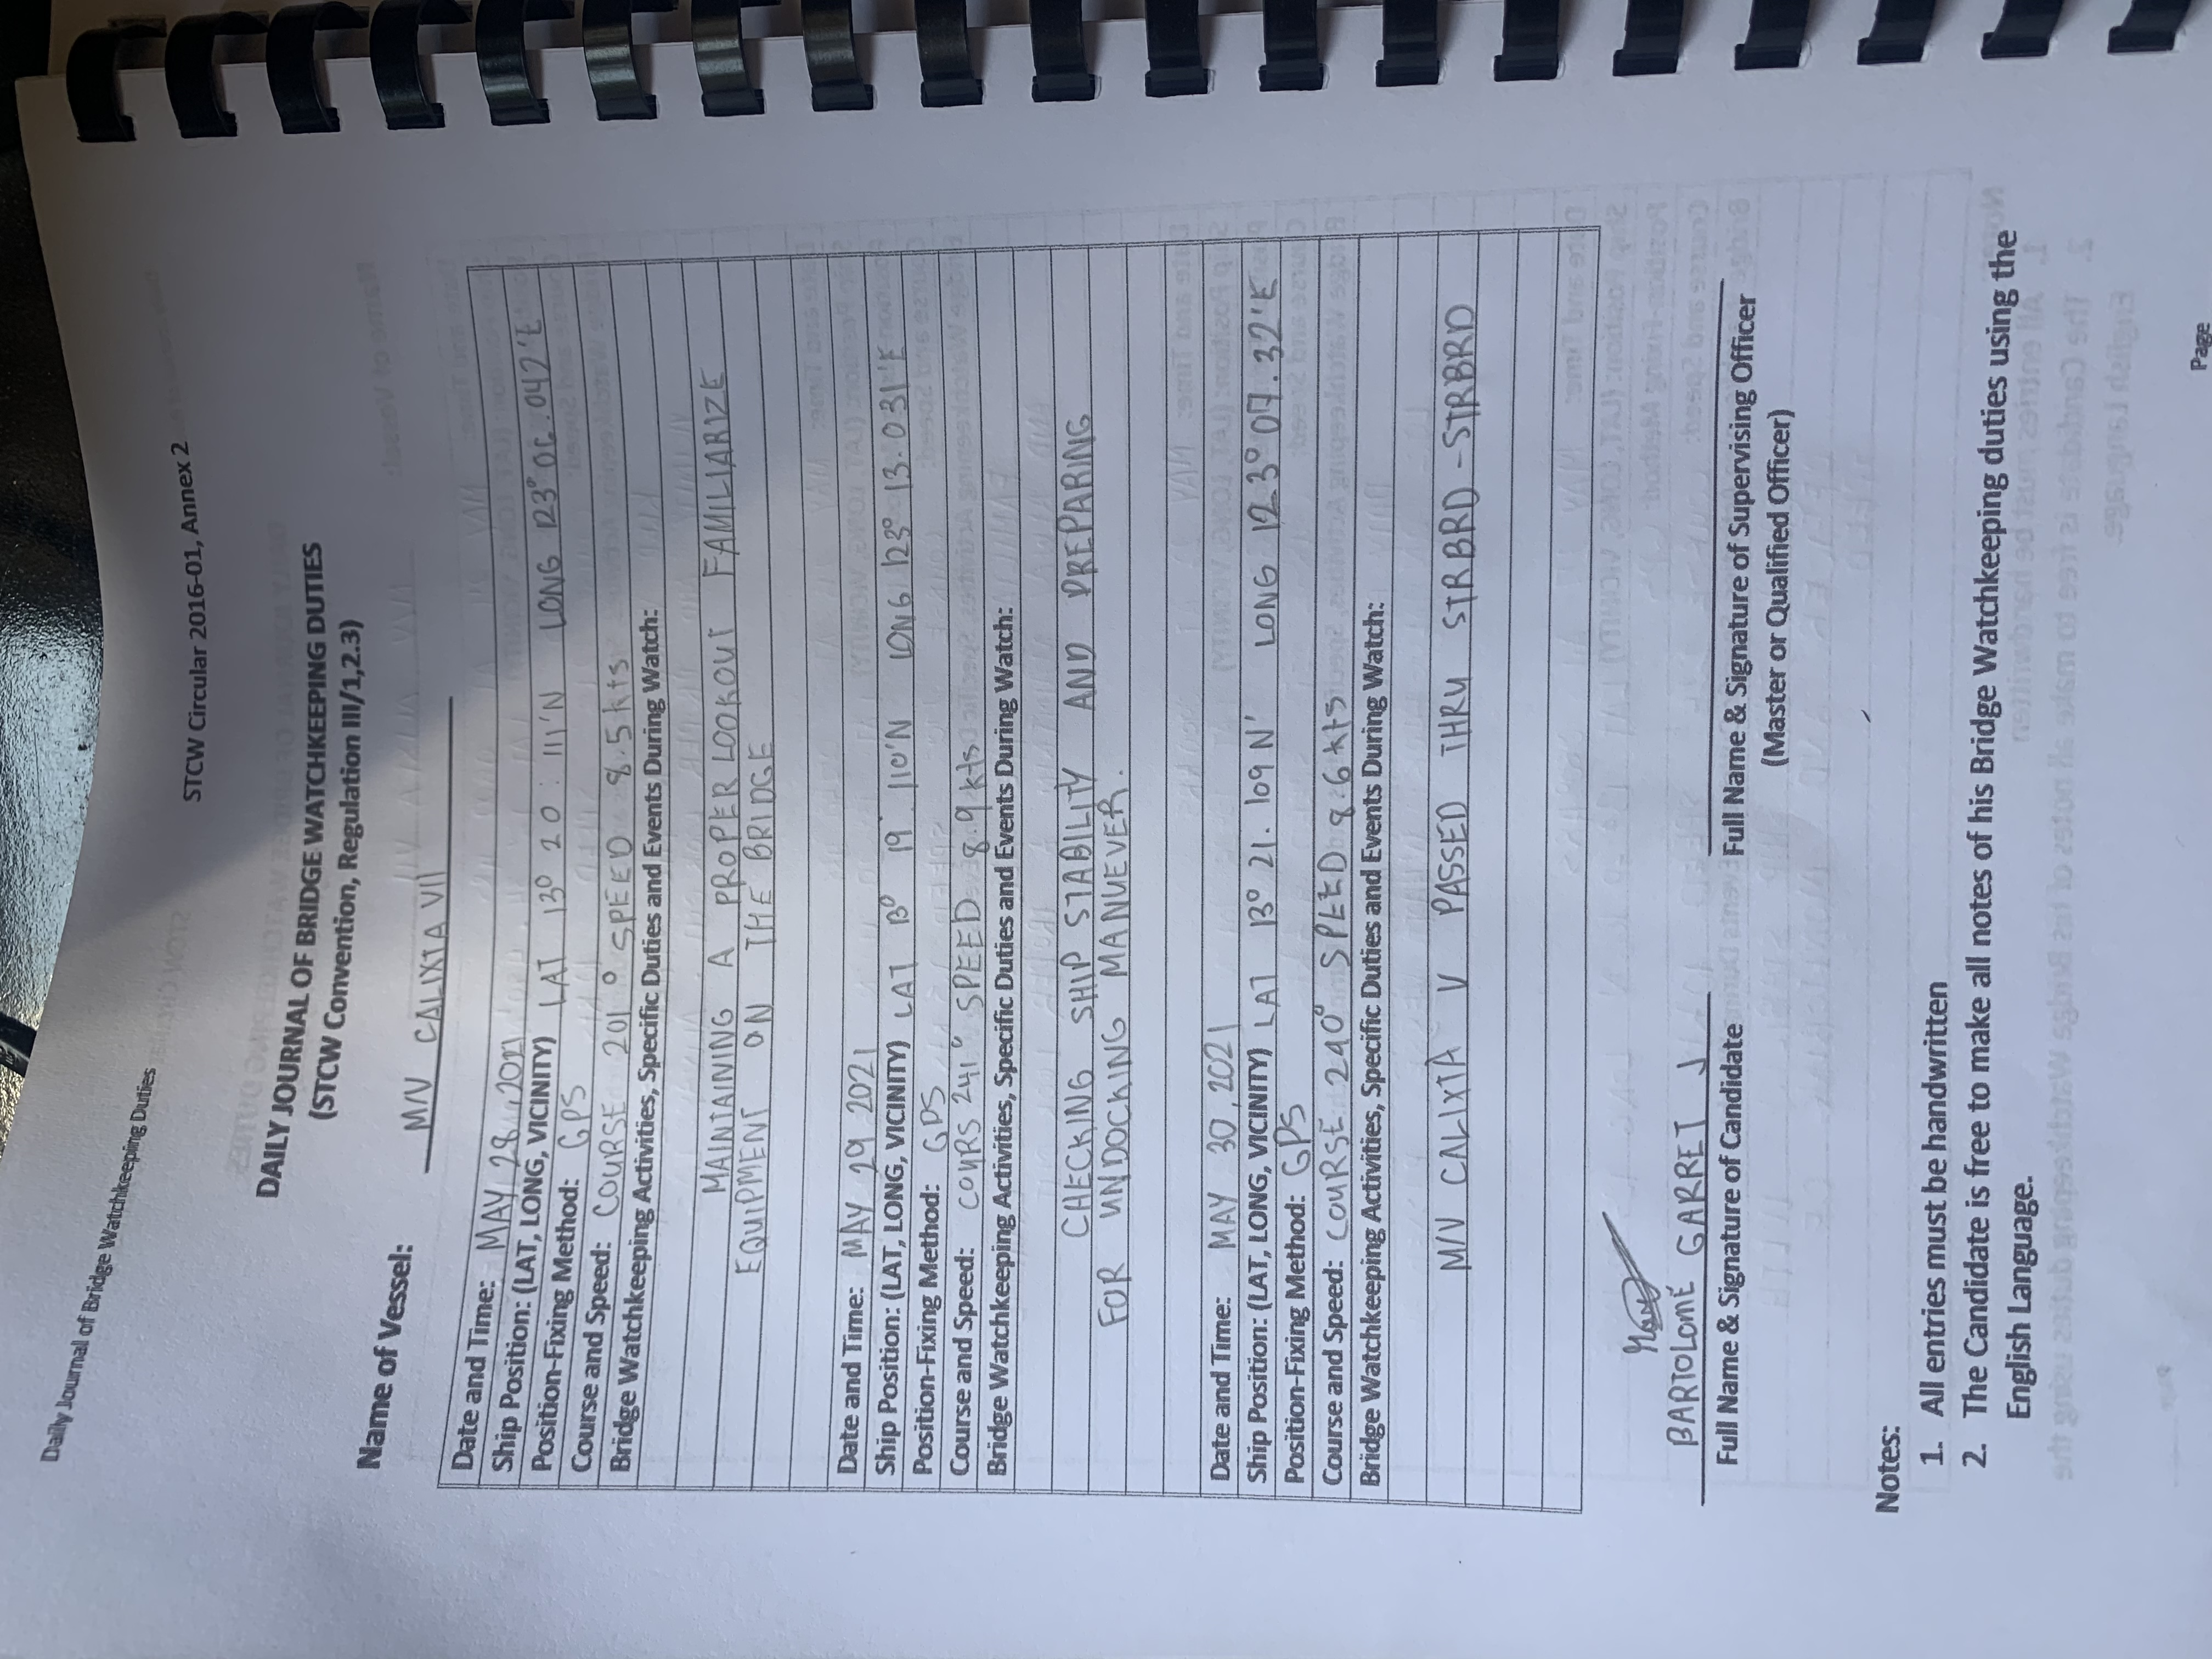 Daily Journal of Bridge Watchkeeping Duties
STCW Circular 2016-01, Annex 2
DAILY JOURNAL OF BRIDGE WATCHKEEPING DUTIES
(STCW Convention, Regulation III/1,2.3)
Name of Vessel: M/V CALIXTA VII
Date and Time: MAY 28, 2021
Ship Position: (LAT, LONG, VICINITY) LAT 13° 20. 111'N LONG 123° 06.042'E
Position-Fixing Method: GPS
Course and Speed: COURSE 201° SPEED 8.5 kts
Bridge Watchkeeping Activities, Specific Duties and Events During Watch:
MAINTAINING A PROPER LOOKOUT FAMILIARIZE
EQUIPMENT ON THE BRIDGE
Date and Time: MAY 29 2021
Ship Position: (LAT, LONG, VICINITY) LAT 13° 19. 110'N LONG 123° 13.031'E
Position-Fixing Method: GPS
Course and Speed: COURS 241° SPEED 8.9 kts
Bridge Watchkeeping Activities, Specific Duties and Events During Watch:
CHECKING SHIP STABILITY AND PREPARING
FOR UNDOCKING MANUEVER.
Date and Time: MAY 30, 2021
Ship Position: (LAT, LONG, VICINITY) LAT 13° 21. 109 N' LONG 123° 07.32'E
Position-Fixing Method: GPS
Course and Speed: COURSE 240° SPEED 8.6 kts
Bridge Watchkeeping Activities, Specific Duties and Events During Watch:
M/V CALIXTA V PASSED THRU STRBRD - STRBRD
BARTOLOME GARRET J
Full Name & Signature of Candidate Full Name & Signature of Supervising Officer
(Master or Qualified Officer)
Notes:
1. All entries must be handwritten
2. The Candidate is free to make all notes of his Bridge Watchkeeping duties using the
English Language.
Page